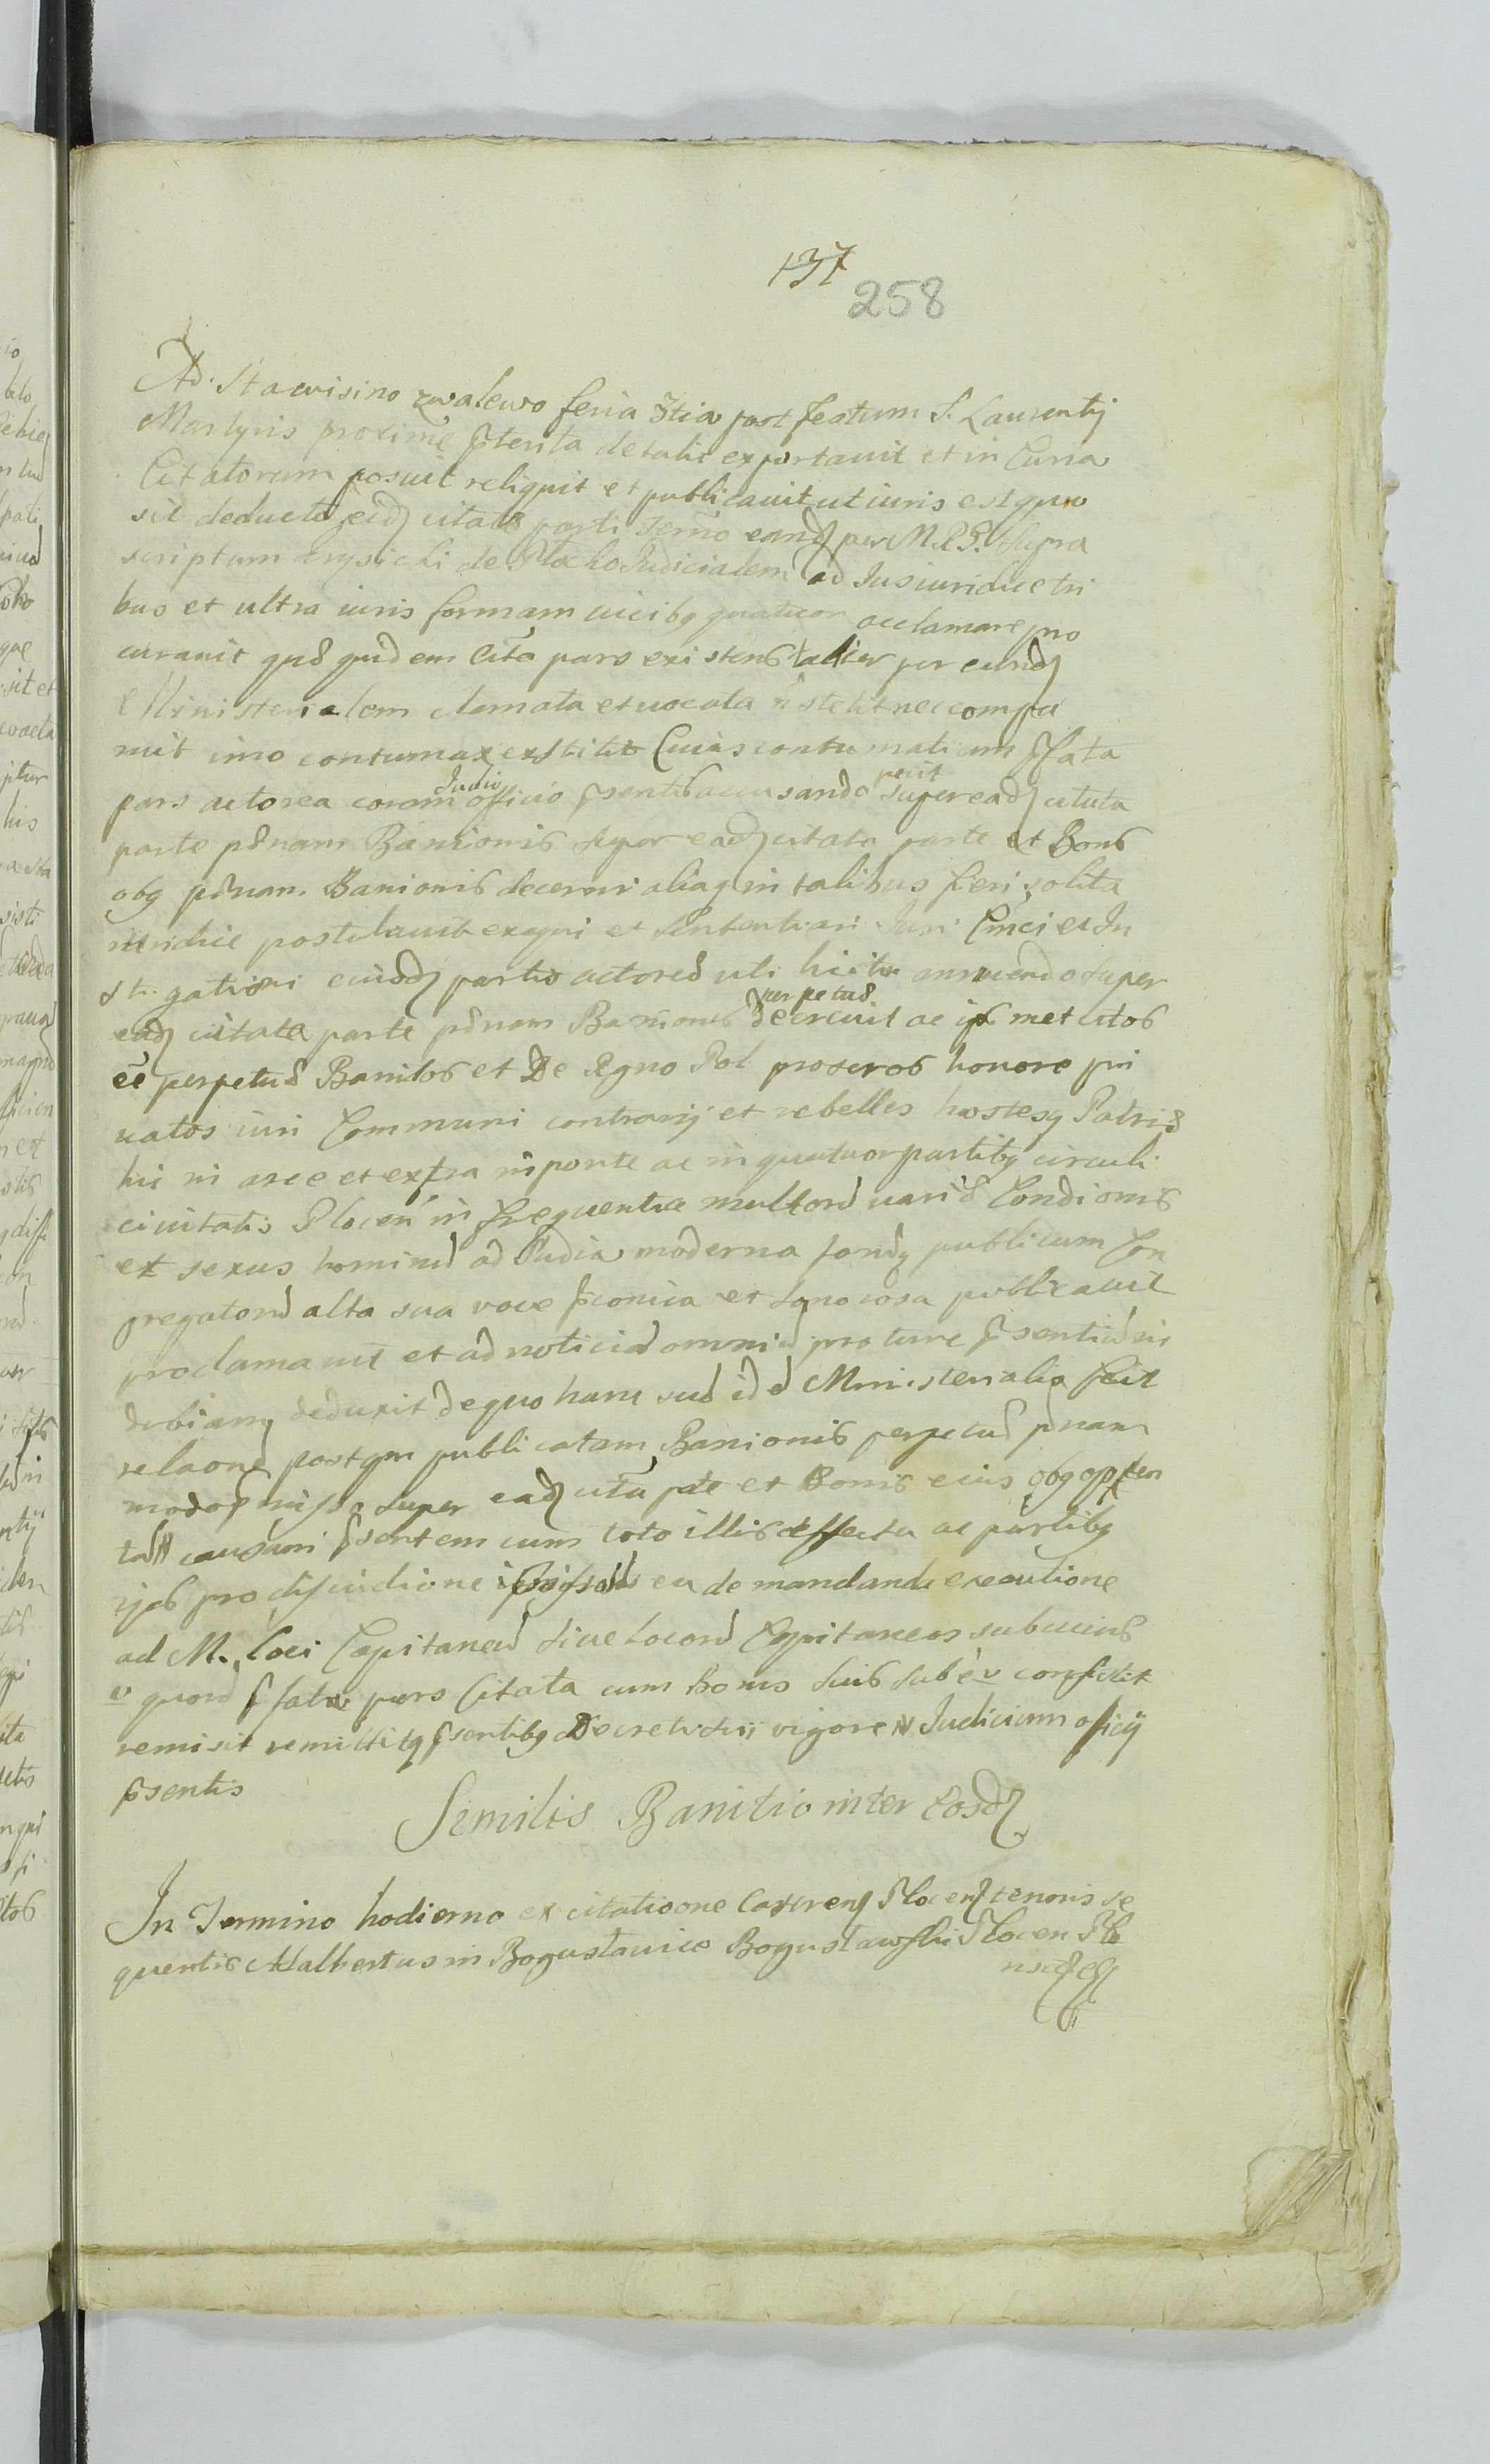 137
258
Ad. Stawisino zwalewo feria 3tia post festum S. Laurentij
Martyris proxime pterita detulit exportauit et in Curia
Citatorum posuit reliquit et publicauit ut iuris est quo
sit deducto eidq citatae parti Termo eandq per M. R. G. Supra
scriptum krysicki de Plocko Judicialem ad Jus iuridice tri
bus et ultra iuris formam uicibq quatuor acclamare pro
curauit quae quidem Cita pars existens taliter per eundq
Ministerialem clamata et uocata n stetit nec compa
ruit imo contumax exstitit Cuius contumatiam pfata
pars actorea coram Judio officio psenti accusando petit super eadq citata
parte paenam Banionis super eadq citata parte et Bonis
obq paenam Banionis decerni aliaq in talibus fieri solita
iuridice postulauit exequi et Sententiari Juri Cinci et In
stigationi eiusdq partis actoreae uti licite annuendo super
eadq citata parte paenam Banionis perpetuae decreuit ac ips met citos
ee perpetuae Banitos et De Regno Pol proscros honore pri
uatos iuri Communi contrarij et rebelles hostesq Patriae
hic in arce et extra in ponte ac in quatuor partibq circuli
ciuitatis Plocen in frequentia multorum uariae Condionis
et sexus hominum ad Judia moderna fandq publicum Con
gregatorum alta sua voce pconica et sonorosa publicauit
proclamauit et ad noticiam omnium pro ture psentium in
dubiamq deduxit de quo hanc suam idem Ministerialis fecit
relaonem postqm publicatam Banionis perpetuae paenam
modo pmisso super eadq cita pte et Bonis eius obq
causam psentem cum toto illis effectu ac partibq
ijsdq pro disiudione eu de mandanda executione
ad M. Loci Capitaneum siue Locorum Capitaneos sub cuius
v quorum pfata pars Citata cum bonis suis sub ev consistit
remisit remittitq psentibq Decreti sui vigore N Judicium officij
psentis
Similis Banitio inter Eosdq
In Termino hodierno ex citatione Castrenq Plocenq tenoris se
quentis Adalbertus in Bogusławice Bogusławski Plocen